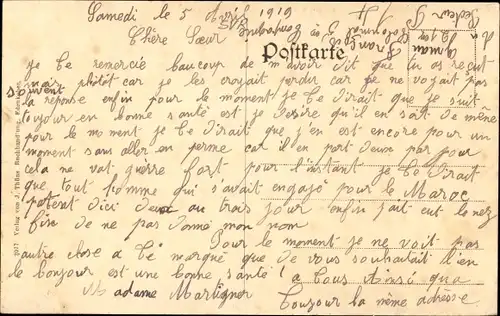 Samedi le 5 Avril 1919
Chère Sœur
Postkarte
je te remercie beaucoup de m'avoir dit que tu as reçut
mais photôt car je les croyait perdu car je ne voyait pas
souvent
la reponse enfin pour le moment je te dirait que je suit
toujour en bonne santé est je desire qu'il en soit de même
pour le moment je te dirait que j'en est encore pour un
moment sans aller en perme car il en part deux par jour
cela ne vat guerre fort pour l'instant je te dirait
que tout homme qui s'avait engagé pour le Maroc
d'ici deux au trois jour enfin fait eut
de ne pas donné mon nom
Pour le moment je ne voit pas
autre chose a te marqué que de vous souhaitait bien
le bonjour est une bonne santé a tous Ainsi qua
Madame Martigner
Toujour la même adresse
2017 Verlag von J. Thöne Buchhandlung,